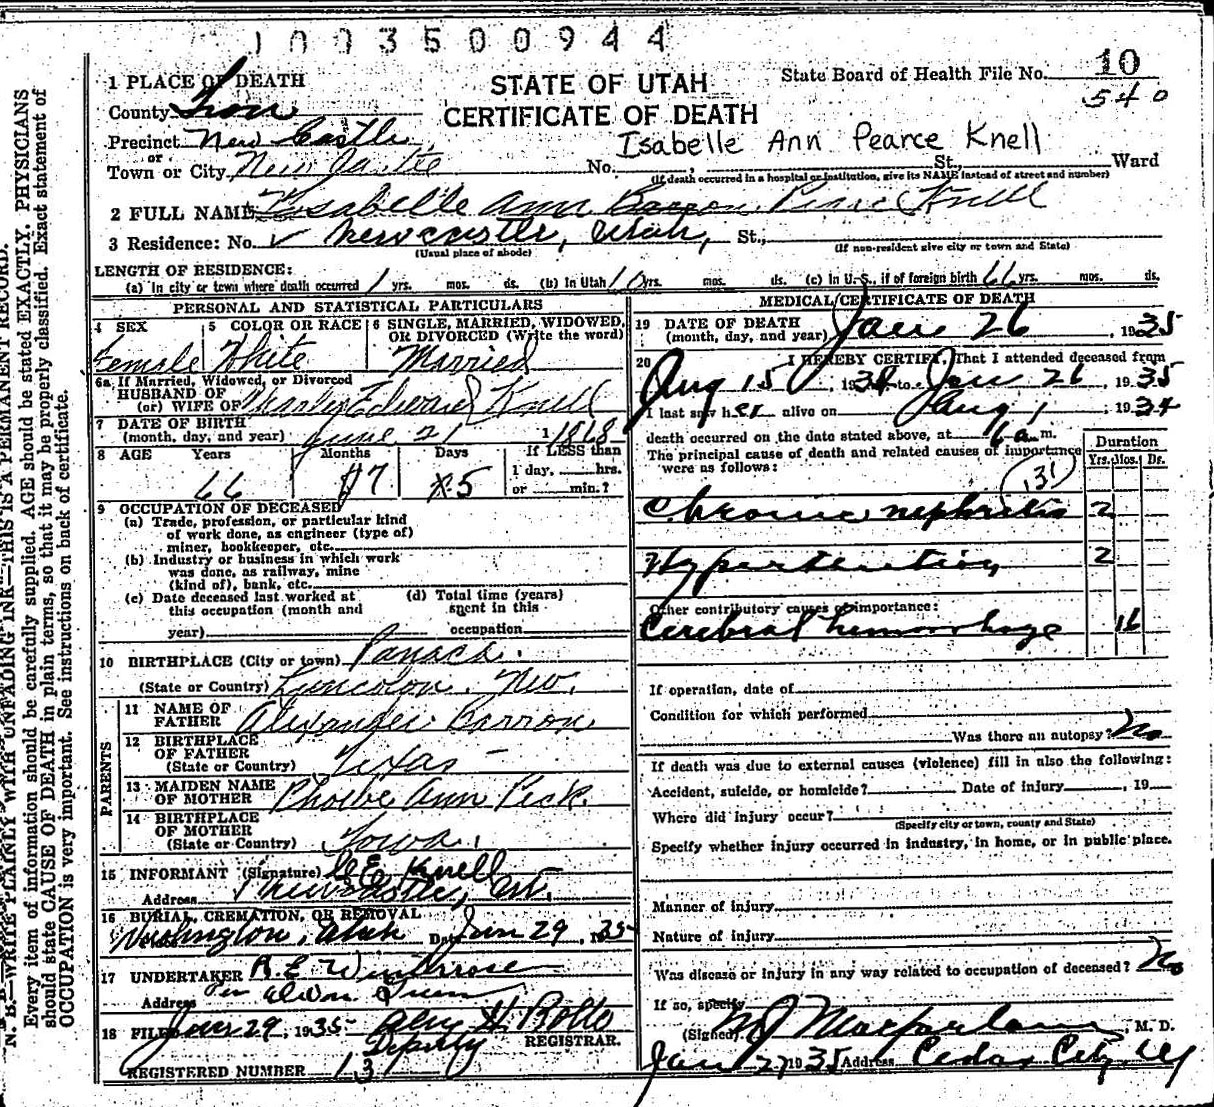 1003500944
1 PLACE OF DEATH
STATE OF UTAH
State Board of Health File No. 10
540
County Iron
CERTIFICATE OF DEATH
Precinct New Castle
Isabelle Ann Pearce Knell
or
Town or City New Castle No. St., Ward
(If death occurred in a hospital or institution, give its NAME instead of street and number)
2 FULL NAME Isabelle Ann Barron Pearce Knell
3 Residence: No. Newcastle, Utah, St.,
(Usual place of abode)
(If non-resident give city or town and State)
LENGTH OF RESIDENCE:
(a) In city or town where death occurred 1 yrs. mos. ds. (b) In Utah yrs. mos. ds. (c) In U.S., if of foreign birth 66 yrs. mos. ds.
PERSONAL AND STATISTICAL PARTICULARS
4 SEX
Female
5 COLOR OR RACE
White
6 SINGLE, MARRIED, WIDOWED, OR DIVORCED (Write the word)
Married
6a If Married, Widowed, or Divorced
HUSBAND OF
(or) WIFE OF Edward Knell
7 DATE OF BIRTH
(month, day, and year) June 21 1868
8 AGE Years Months Days If LESS than
1 day, hrs.
66 7 5 or min.?
9 OCCUPATION OF DECEASED
(a) Trade, profession, or particular kind
of work done, as engineer (type of)
miner, bookkeeper, etc.
(b) Industry or business in which work
was done, as railway, mine
(kind of), bank, etc.
(c) Date deceased last worked at
this occupation (month and
year)
(d) Total time (years)
spent in this
occupation
10 BIRTHPLACE (City or town) Panaca.
(State or Country) Nev.
PARENTS
11 NAME OF
FATHER Alexander Barron
12 BIRTHPLACE
OF FATHER
(State or Country) Texas
13 MAIDEN NAME
OF MOTHER Phoebe Ann Peck.
14 BIRTHPLACE
OF MOTHER
(State or Country) Iowa.
15 INFORMANT (Signature) Knell
Address Newcastle, Ut.
16 BURIAL, CREMATION, OR REMOVAL
Washington, Utah Date Jan 29, 1935
17 UNDERTAKER
Address
18 FILED Jan 29, 1935
Deputy REGISTRAR.
REGISTERED NUMBER 13
MEDICAL CERTIFICATE OF DEATH
19 DATE OF DEATH
(month, day, and year) Jan 26, 1935
20 I HEREBY CERTIFY, That I attended deceased from
Aug 15, 1934 to Jan 26, 1935
I last saw her alive on Aug 1, 1934
death occurred on the date stated above, at 6 a m.
The principal cause of death and related causes of importance
were as follows:
Duration
Yrs. Mos. Ds.
131
Chronic nephritis 2
Hypertention 2
Other contributory causes of importance:
Cerebral hemorrhage 16
If operation, date of
Condition for which performed
Was there an autopsy? No
If death was due to external causes (violence) fill in also the following:
Accident, suicide, or homicide? Date of injury , 19
Where did injury occur?
(Specify city or town, county and State)
Specify whether injury occurred in industry, in home, or in public place.
Manner of injury
Nature of injury
Was disease or injury in any way related to occupation of deceased? No
If so, specify
(Signed) Macfarlane, M. D.
Jan 27 1935 Address Cedar City, Ut
N. B.—WRITE PLAINLY WITH UNFADING INK—THIS IS A PERMANENT RECORD.
Every item of information should be carefully supplied. AGE should be stated EXACTLY. PHYSICIANS
should state CAUSE OF DEATH in plain terms, so that it may be properly classified. Exact statement of
OCCUPATION is very important. See instructions on back of certificate.